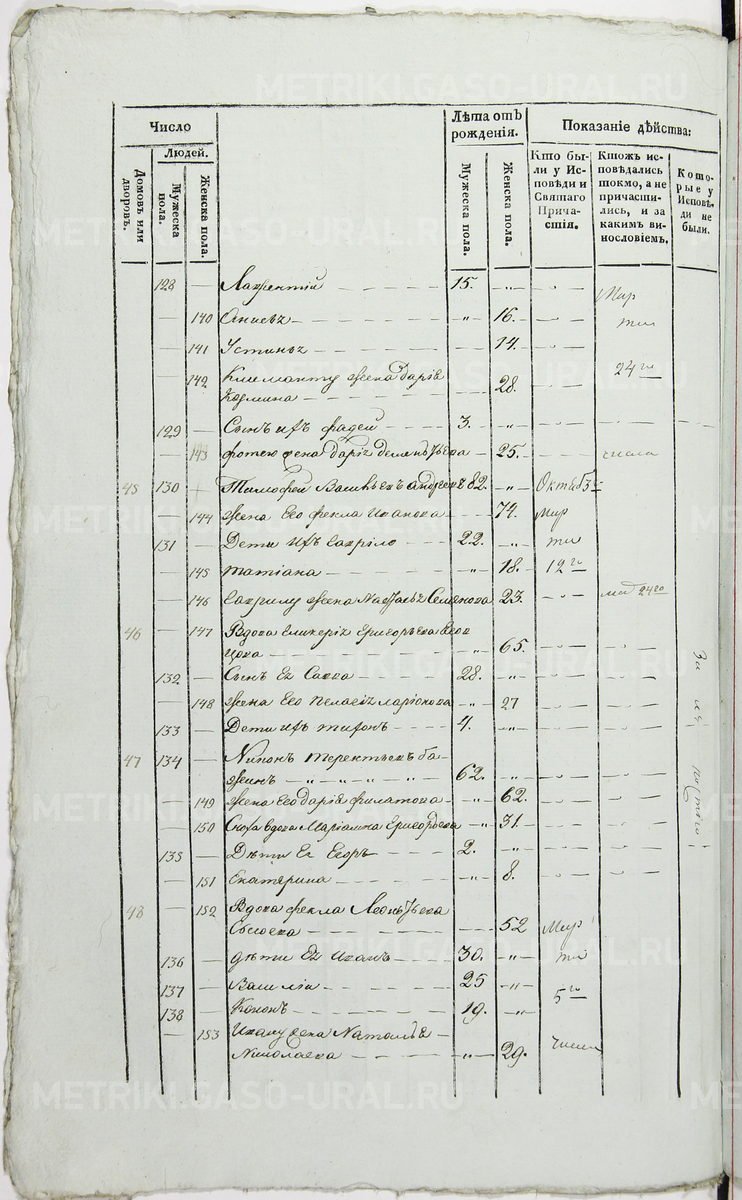 METRIKI.GASO-URAL.RU
Число
Людей.
Домовъ или дворовъ.
Мужеска пола.
Женска пола.
Лѣта отъ рожденія.
Мужеска пола.
Женска пола.
Показаніе дѣйства:
Кто бы-
ли у Ис-
повѣди и
Святаго
Прича-
стія.
Ктожъ ис-
повѣдались
токмо, а не
причасти-
лись, и за
какимъ ви-
нословіемъ.
Кото-
рые у
Исповѣ-
ди не
были.
128 — Лаврентій — 15. — Мар
— 140 — 16. та
— 141 Устинъ — 14.
— 142 Климанту жена Дарія 24го
Козмина — 28.
129 — Сынъ ихъ Фадей — 3.
— 143 Фотею жена Дарія — 25. — числа
45 130 — Тимофей Васильевъ 82. — Октяб 3го
— 144 жена Его Фекла Иванова — 74. Мар
131 — Дети ихъ Гаврило — 22. та
— 145 Татіана — 18. 12го
— 146 Гаврилу жена Наталья Семенова 23. — 24го
46 — 147 Вдова Гликерія Григорьева
65.
132 — Сынъ Ея Савва — 28.
— 148 жена Его Пелагія Ларіонова — 27
133 — Дети ихъ Тихонъ — 4.
47 134 — Никонъ Терентьевъ Ба-
жинъ — 62.
— 149 жена Его Дарія Филатова — 62.
— 150 Сноха вдова Маріамна Григорьева — 31.
135 — Дѣти Ея Егоръ — 2.
— 151 Екатерина — 8.
48 — 152 Вдова Фекла Леонтьева
Сысоева — 52 Мар
136 — дѣти Ея Иванъ — 30. та
137 — Василій — 25 — 5го
138 — Кононъ — 19.
— 153 Ивану жена Наталья
Николаева — 29. числа